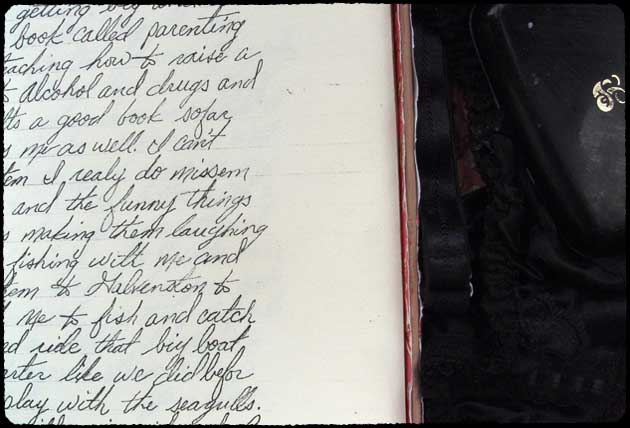 getting big when
book called parenting
teaching how to raise a
to alcohol and drugs and
Its a good book sofar,
s me as well. I can't
tem I realy do missem
and the funny things
s making them laughing
fishing with me and
tem to Galvenston to
me to fish and catch
nd ride that big boat
arter like we did befor
play with the seagulls.